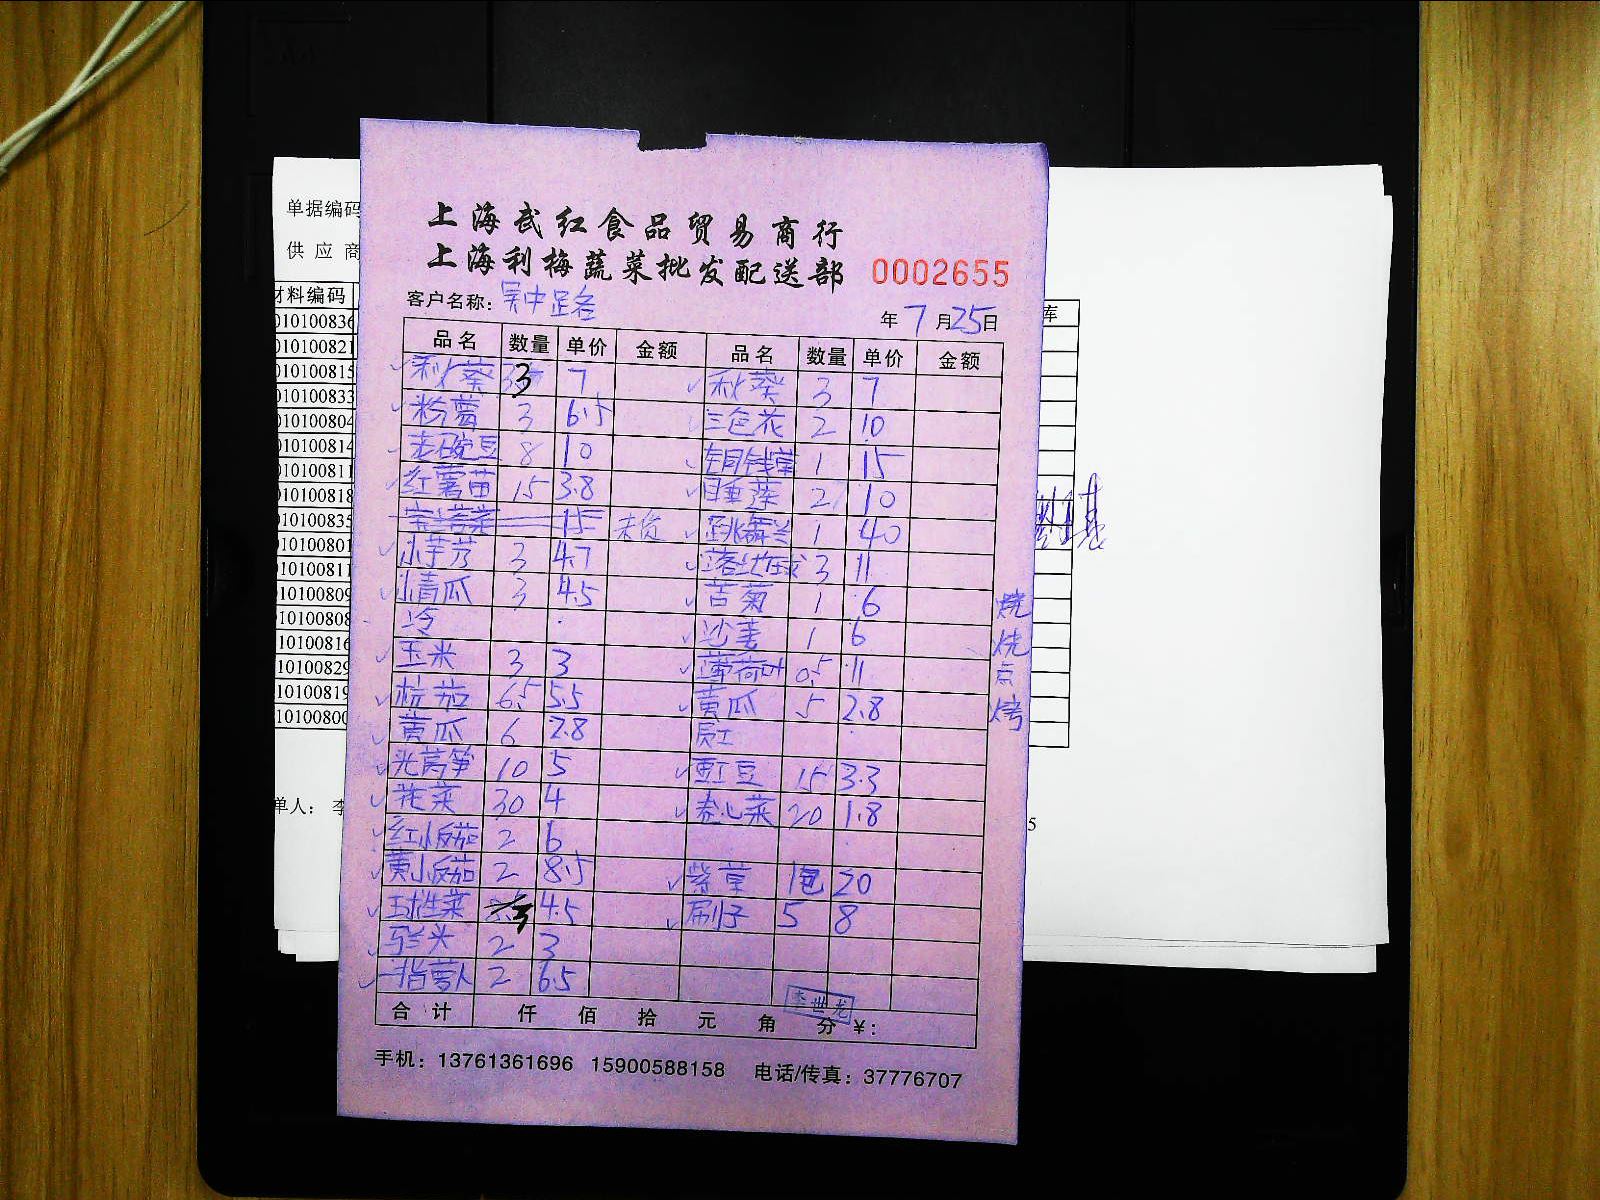 上海武红食品贸易商行
上海利梅蔬菜批发配送部 0002655
客户名称：吴中路名
年7月25日
品名 数量 单价 金额 品名 数量 单价 金额
秋葵 3 7 秋葵 3 7
粉葛 3 6.5 三色花 2 10
老豌豆 8 10 铜钱草 1 15
红薯苗 15 3.8 睡莲 2 10
15 未货 跳舞兰 1 40
小芋艿 3 4.7 3 11
小青瓜 3 4.5 苦菊 1 6
冷 沙姜 1 6
玉米 3 3 薄荷叶 0.5 11
杭茄 6.5 5.5 黄瓜 5 2.8
黄瓜 6 2.8 员工
光莴笋 10 5 豇豆 15 3.3
花菜 30 4 卷心菜 20 1.8
红小番茄 2 6
黄小番茄 2 8.5 紫草 1包 20
球生菜 3 4.5 刷子 5 8
马兰头 2 3
手指萝卜 2 6.5
烧
烧
点
烤
李世龙
合计 仟 佰 拾 元 角 分 ¥：
手机：13761361696 15900588158 电话/传真：37776707
单据编码
供应商
材料编码
010100836
010100821
010100815
010100833
010100804
010100814
010100811
010100818
010100835
010100801
010100811
010100809
010100808
010100816
010100829
010100819
010100800
单人：李
库
5